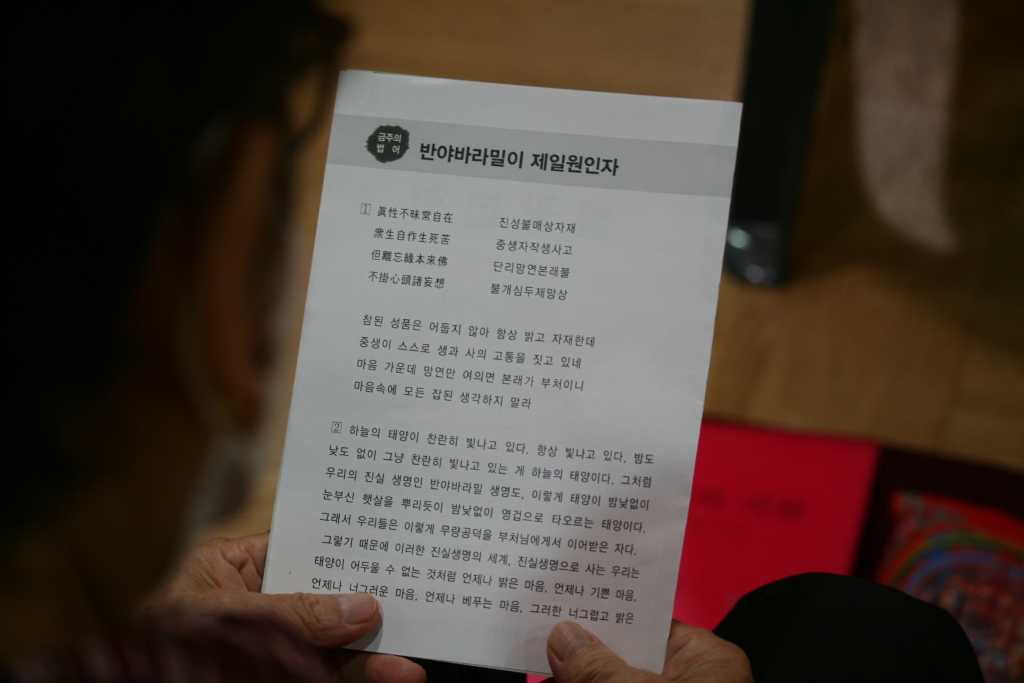 금주의
법 어
반야바라밀이 제일원인자
1 眞性不昧常自在 진성불매상자재
衆生自作生死苦 중생자작생사고
但離忘緣本來佛 단리망연본래불
不掛心頭諸妄想 불개심두제망상
참된 성품은 어둡지 않아 항상 밝고 자재한데
중생이 스스로 생과 사의 고통을 짓고 있네
마음 가운데 망연만 여의면 본래가 부처이니
마음속에 모든 잡된 생각하지 말라
2 하늘의 태양이 찬란히 빛나고 있다. 항상 빛나고 있다. 밤도
낮도 없이 그냥 찬란히 빛나고 있는 게 하늘의 태양이다. 그처럼
우리의 진실 생명인 반야바라밀 생명도, 이렇게 태양이 밤낮없이
눈부신 햇살을 뿌리듯이 밤낮없이 영겁으로 타오르는 태양이다.
그래서 우리들은 이렇게 무량공덕을 부처님에게서 이어받은 자다.
그렇기 때문에 이러한 진실생명의 세계, 진실생명으로 사는 우리는
태양이 어두울 수 없는 것처럼 언제나 밝은 마음, 언제나 기쁜 마음,
언제나 너그러운 마음, 언제나 베푸는 마음, 그러한 너그럽고 밝은